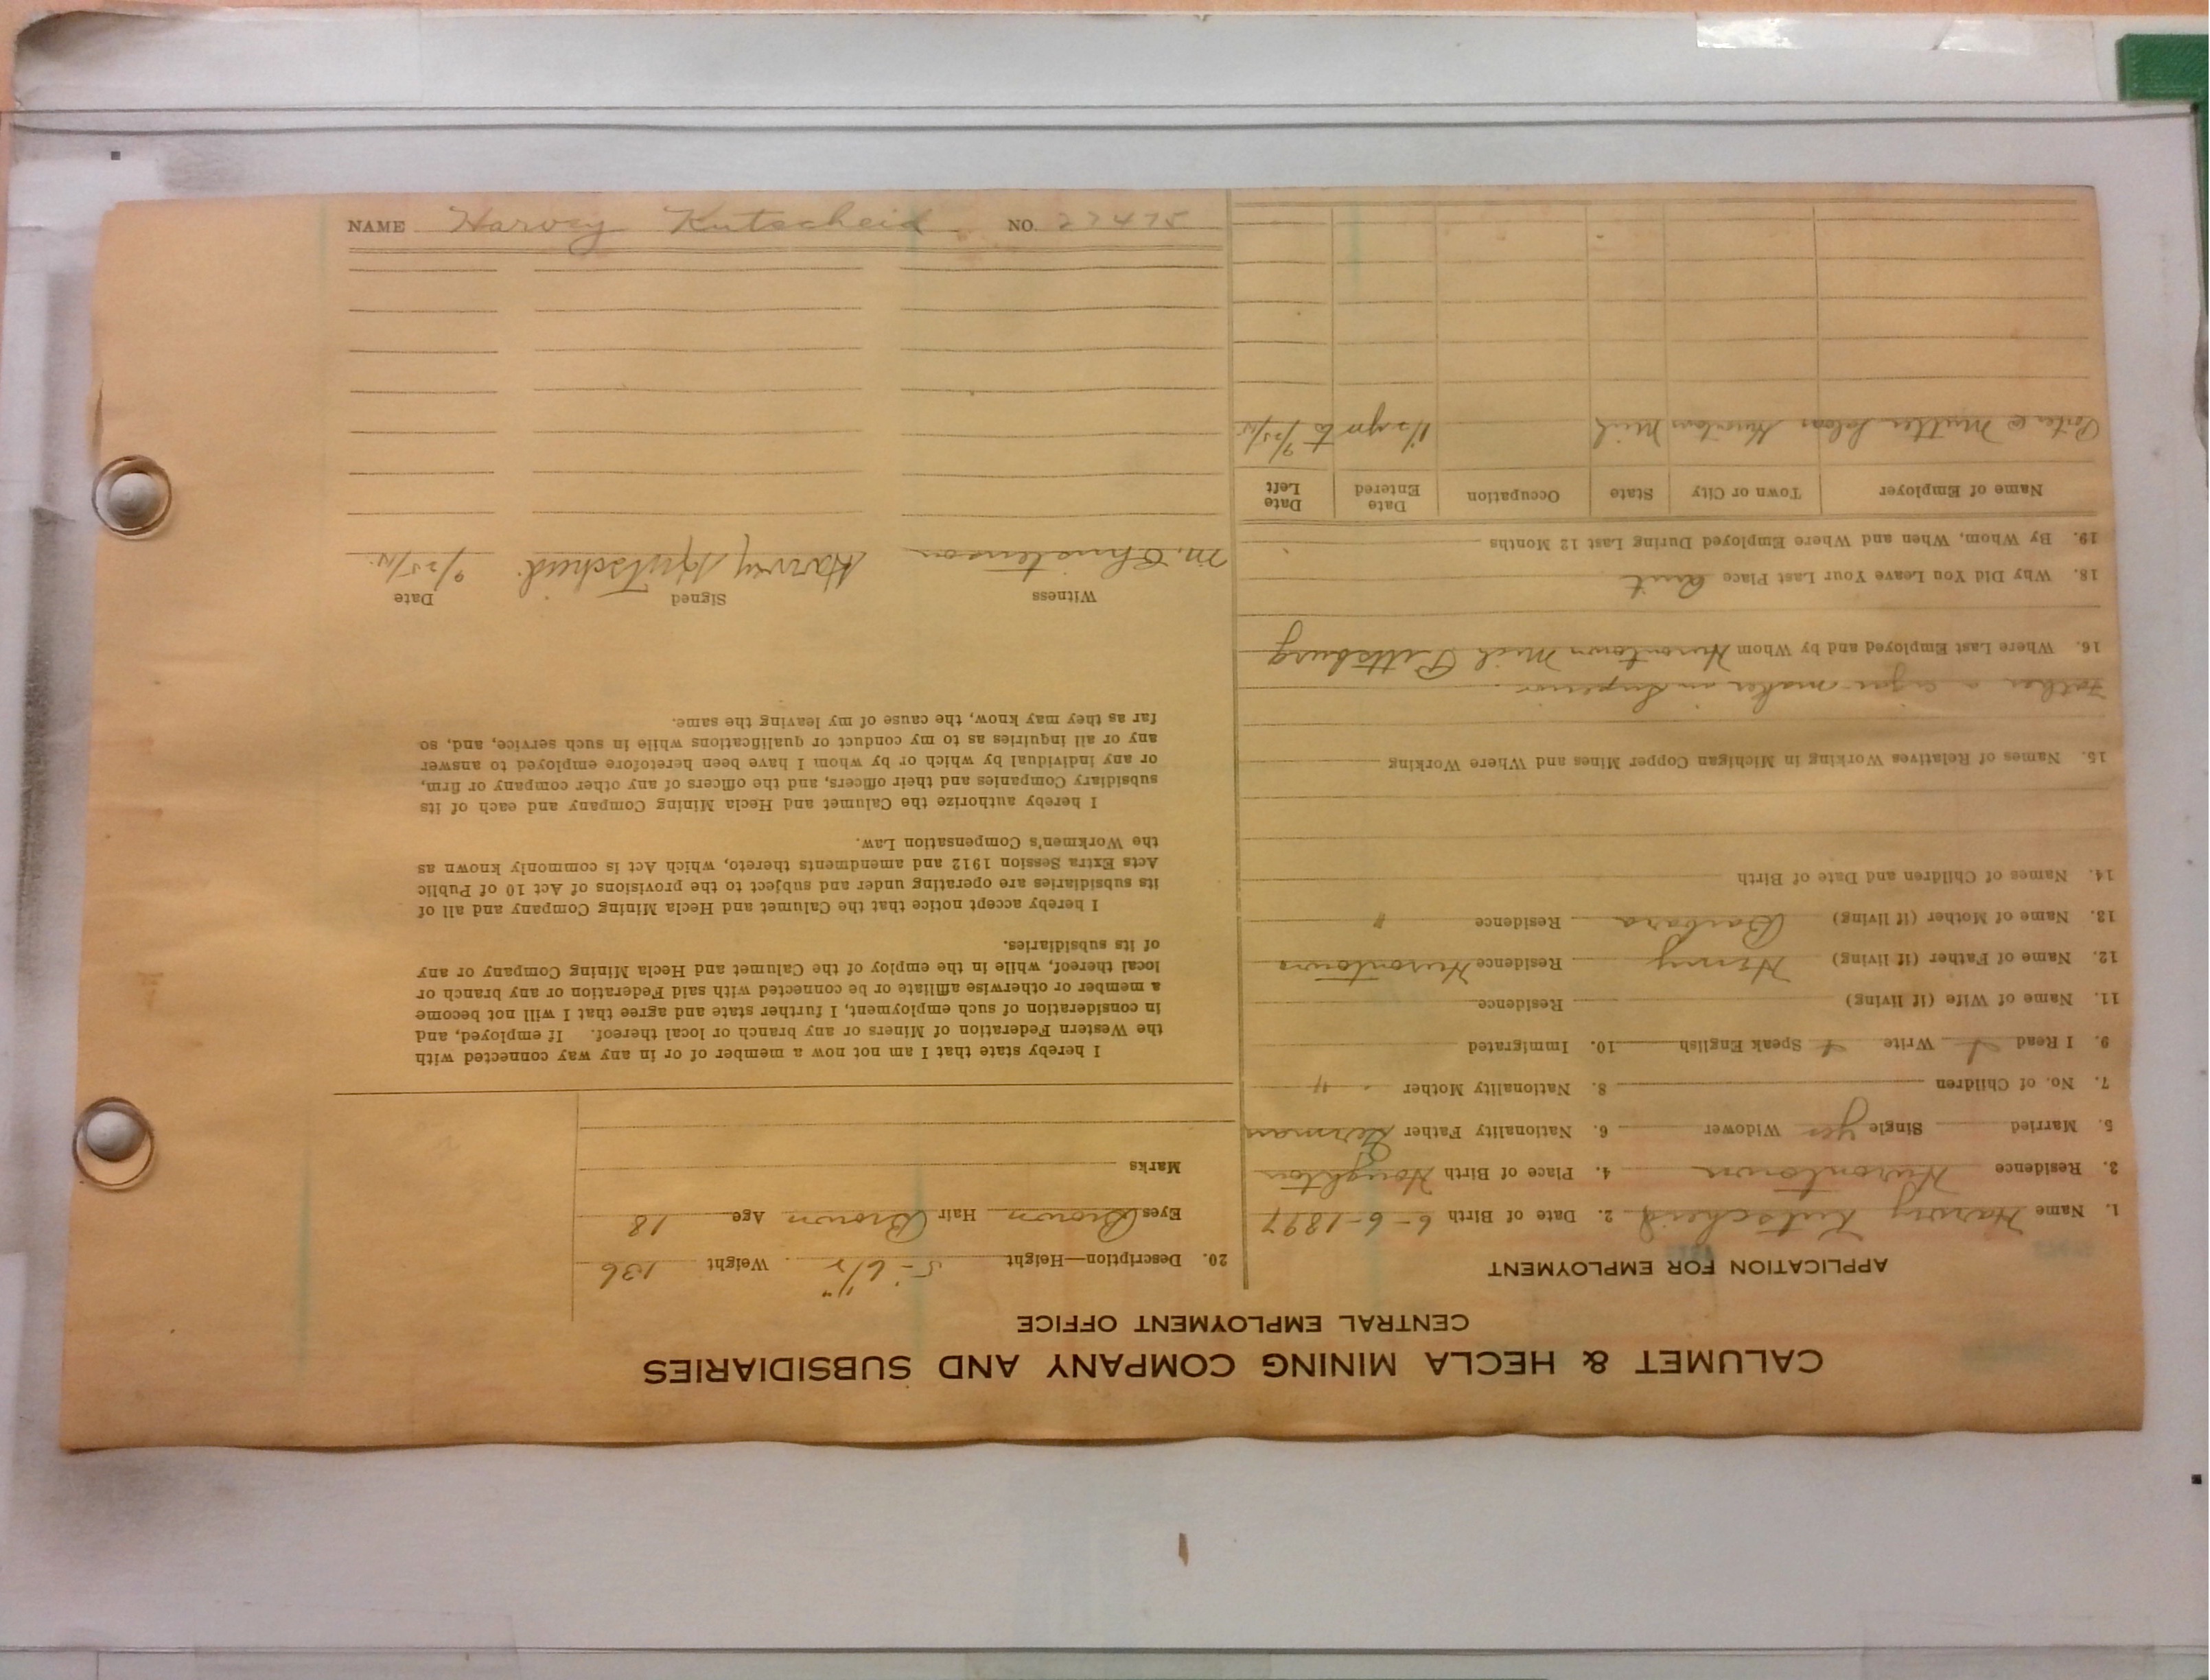 CALUMET & HECLA MINING COMPANY AND SUBSIDIARIES
CENTRAL EMPLOYMENT OFFICE
APPLICATION FOR EMPLOYMENT
1. Name Harvey Kutscheid 2. Date of Birth 6-6-1897
3. Residence Hurontown 4. Place of Birth Houghton
5. Married Single yes Widower 6. Nationality Father German
7. No. of Children 8. Nationality Mother "
9. I Read Write Speak English 10. Immigrated
11. Name of Wife (if living) Residence
12. Name of Father (if living) Henry Residence Hurontown
13. Name of Mother (if living) Barbara Residence "
14. Names of Children and Date of Birth
15. Names of Relatives Working in Michigan Copper Mines and Where Working
Father a cigar-maker in Superior
16. Where Last Employed and by Whom Hurontown Mich Pittsburg
18. Why Did You Leave Your Last Place Quit
19. By Whom, When and Where Employed During Last 12 Months
Name of Employer Town or City State Occupation Date Entered Date Left
Mich 1/2 yr to 9/25/15
20. Description—Height 5-6 1/2" Weight 136
Eyes Brown Hair Brown Age 18
Marks
I hereby state that I am not now a member of or in any way connected with
the Western Federation of Miners or any branch or local thereof. If employed, and
in consideration of such employment, I further state and agree that I will not become
a member or otherwise affiliate or be connected with said Federation or any branch or
local thereof, while in the employ of the Calumet and Hecla Mining Company or any
of its subsidiaries.
I hereby accept notice that the Calumet and Hecla Mining Company and all of
its subsidiaries are operating under and subject to the provisions of Act 10 of Public
Acts Extra Session 1912 and amendments thereto, which Act is commonly known as
the Workmen's Compensation Law.
I hereby authorize the Calumet and Hecla Mining Company and each of its
subsidiary Companies and their officers, and the officers of any other company or firm,
or any individual by which or by whom I have been heretofore employed to answer
any or all inquiries as to my conduct or qualifications while in such service, and, so
far as they may know, the cause of my leaving the same.
Witness Signed Date
M. Christenson Harvey Kutscheid. 9/25/15.
NAME Harvey Kutscheid NO. 27475